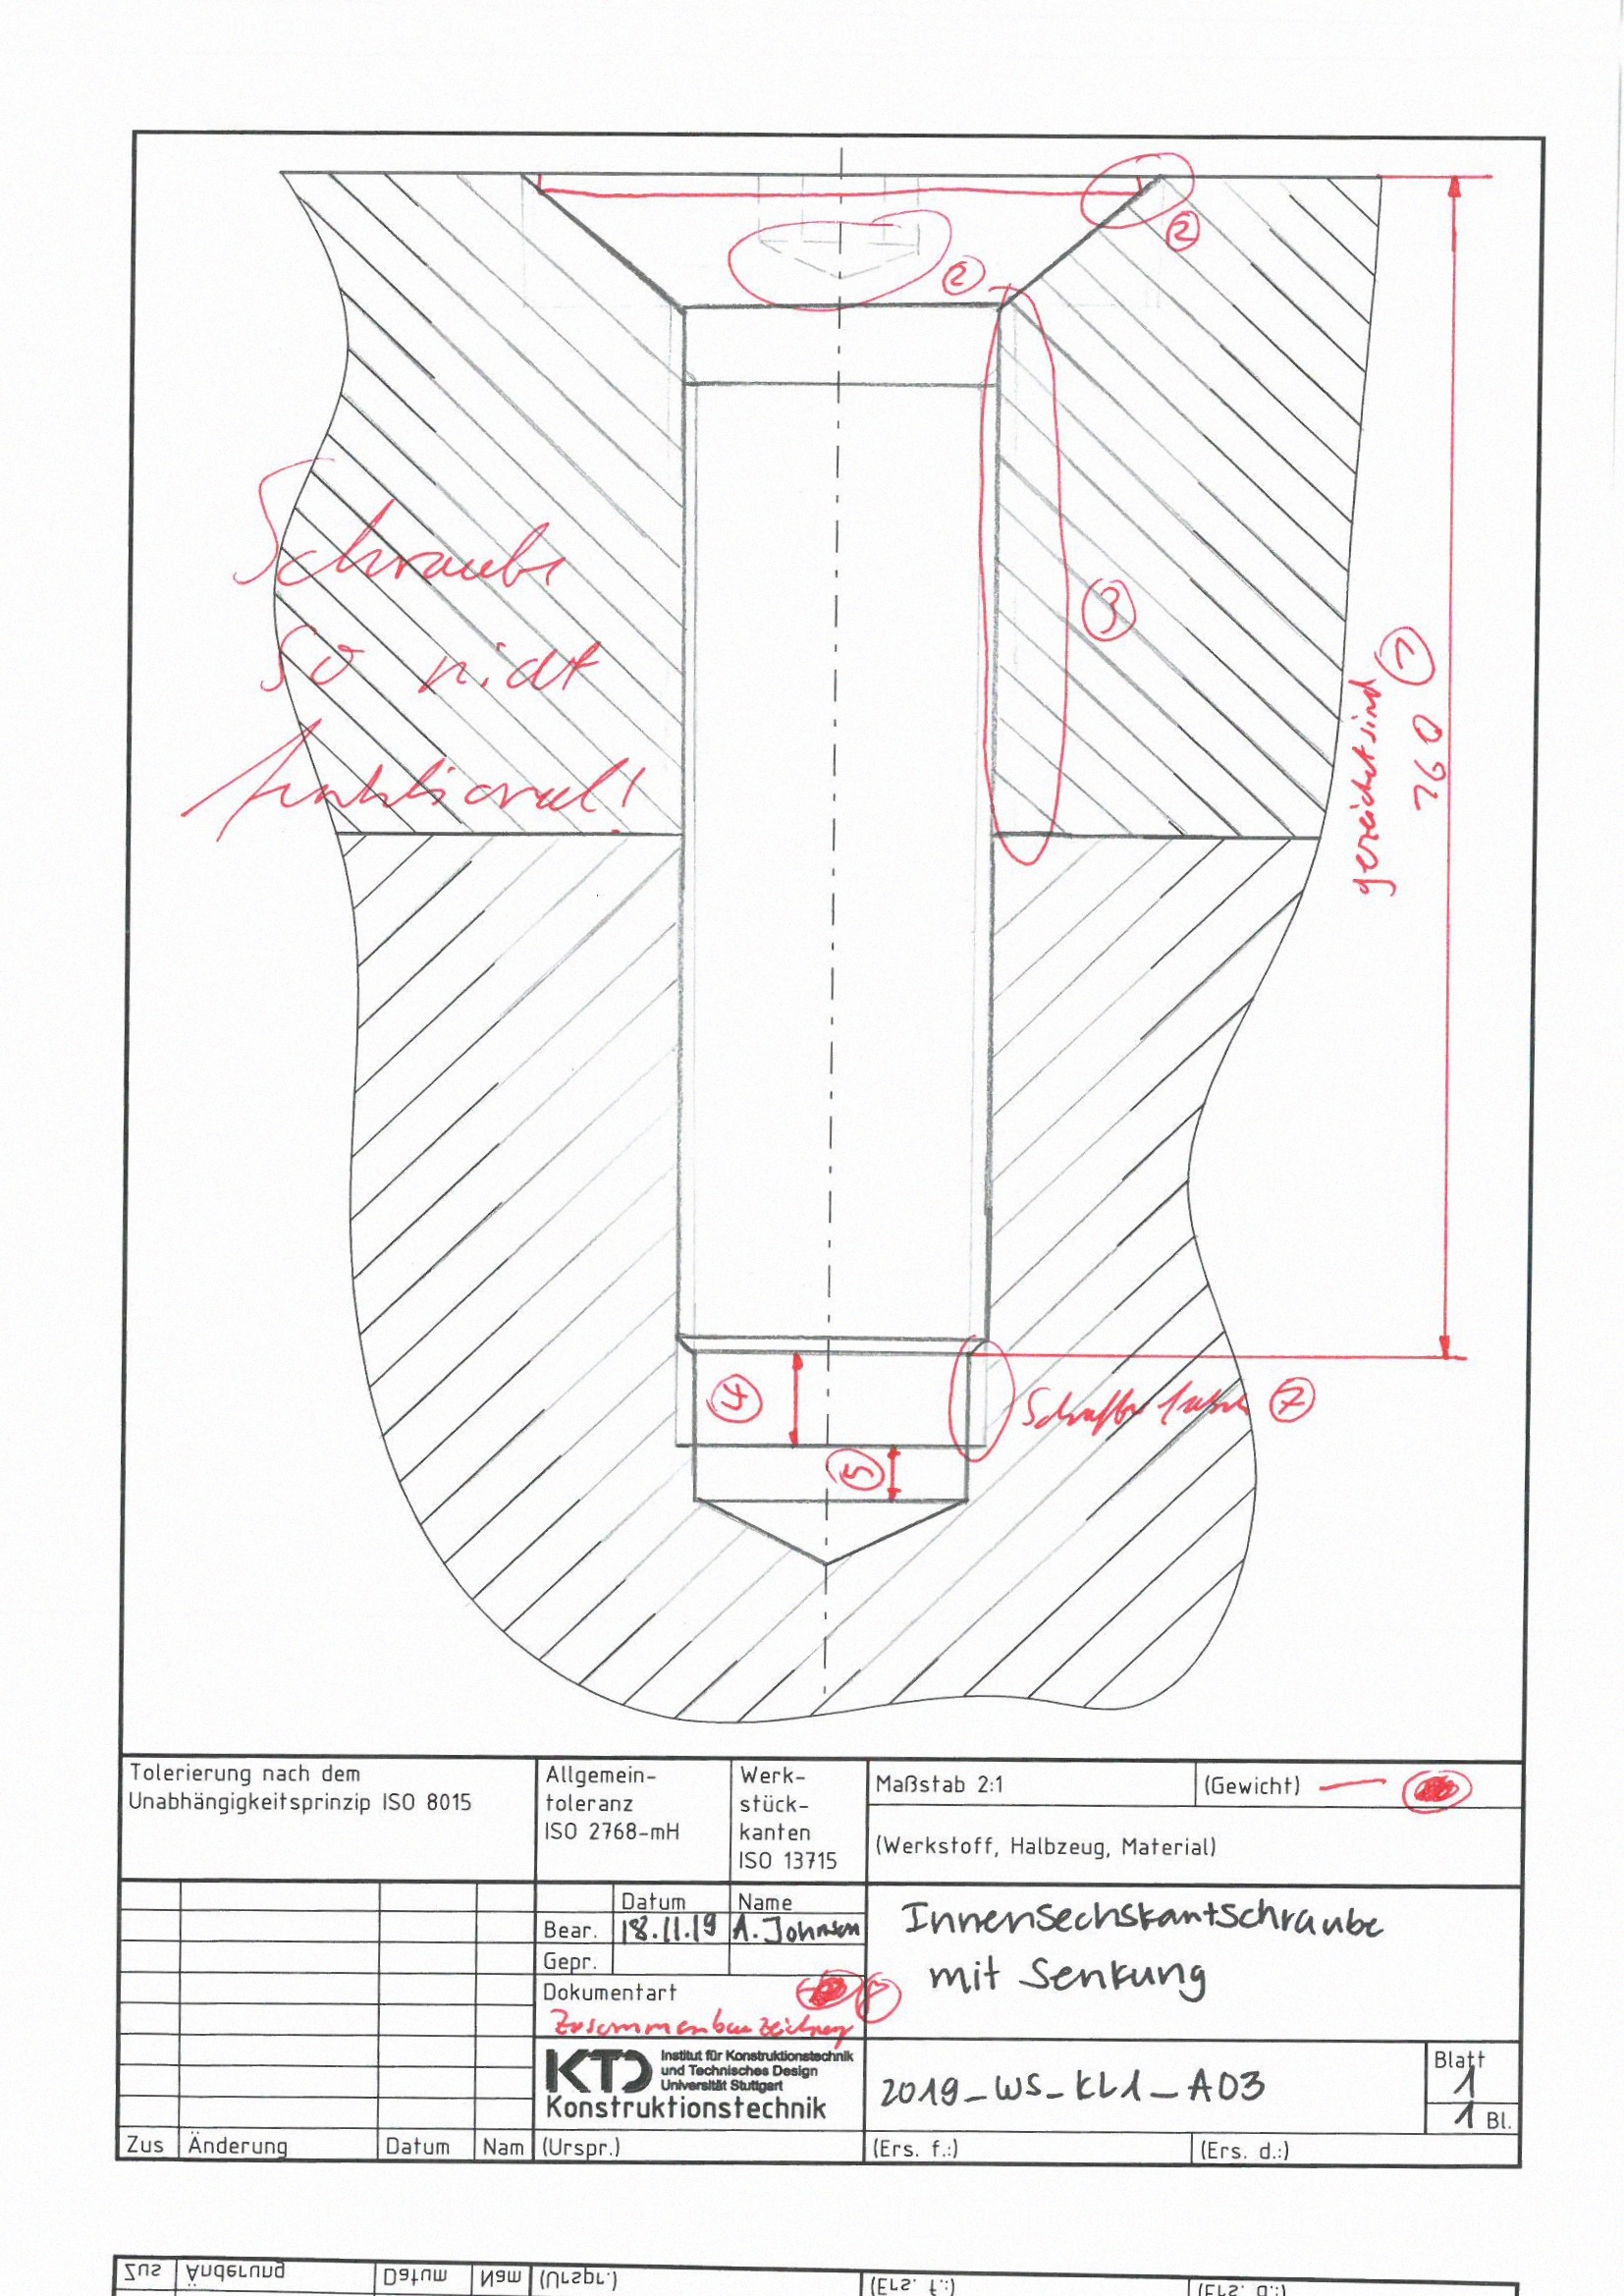 ②
②
Schraube
so nicht
funktional!
③
gezeichet sind
160 ①
④
⑤
Schraffur falsch ⑦
Tolerierung nach dem
Unabhängigkeitsprinzip ISO 8015
Allgemein-
toleranz
ISO 2768-mH
Werk-
stück-
kanten
ISO 13715
Maßstab 2:1
(Gewicht) —
(Werkstoff, Halbzeug, Material)
Datum Name
Bear. 18.11.19 A. Johnson
Gepr.
Dokumentart
Zusammenbauzeichnung
Innensechskantschraube
mit Senkung
KTD Institut für Konstruktionstechnik
und Technisches Design
Universität Stuttgart
Konstruktionstechnik
2019_WS_KL1_A03
Blatt
1
1 Bl.
Zus Änderung Datum Nam (Urspr.) (Ers. f.:) (Ers. d.:)
Zus Änderung Datum Nam (Urspr.) (Ers. f.:) (Ers. d.:)